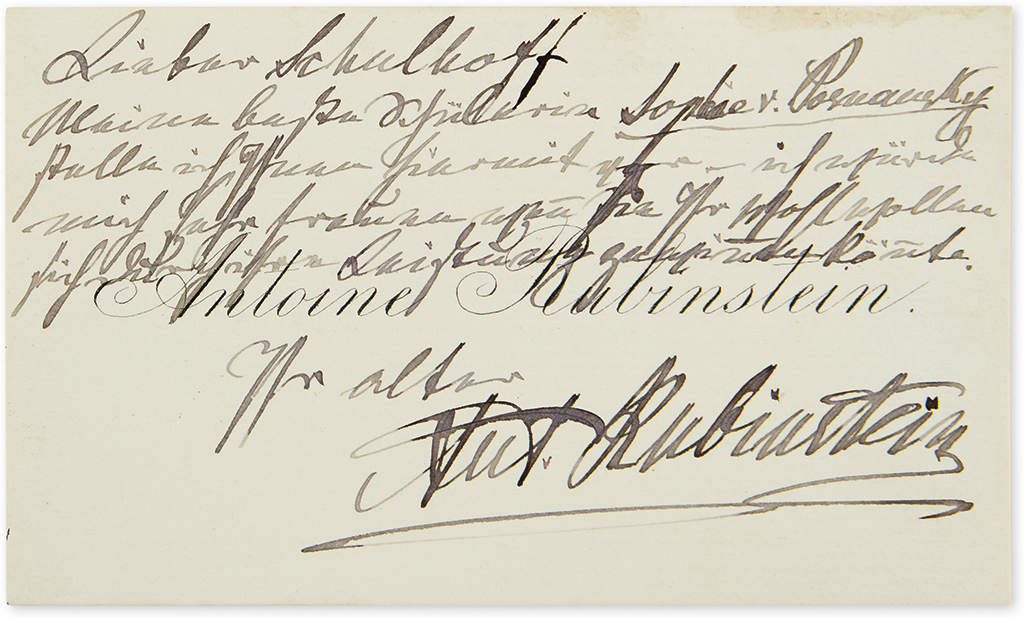 Lieber Schulhoff
Meine beste Schülerin Sophie v. Posnansky
stelle ich Ihnen hiermit vor – ich würde
mich sehr freuen wen̄ sie Ihr Wohlwollen
sich durch ihre Leistung gewin̄en kön̄te.
Antoine Rubinstein.
Ihr alter
Ant. Rubinstein